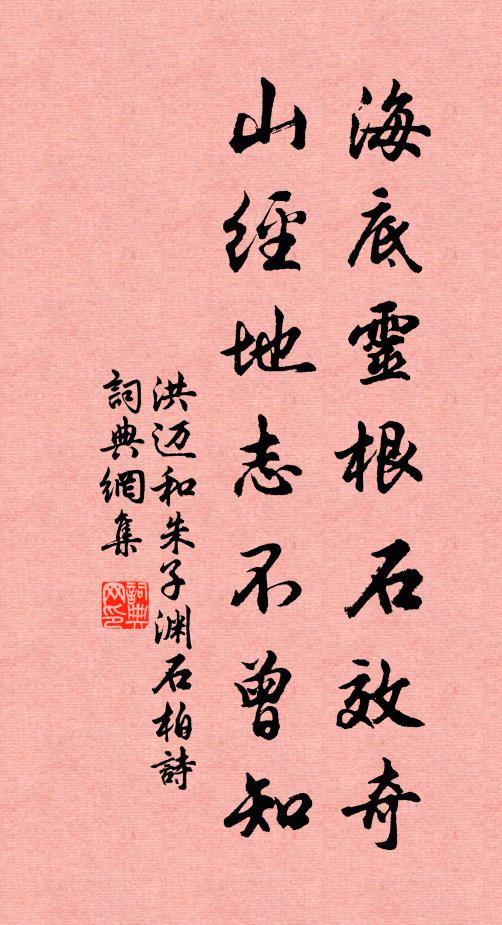 海底靈根石效奇
山經地志不曾知
洪迈和朱子渊石柏詩
詞典網集
詞典網印